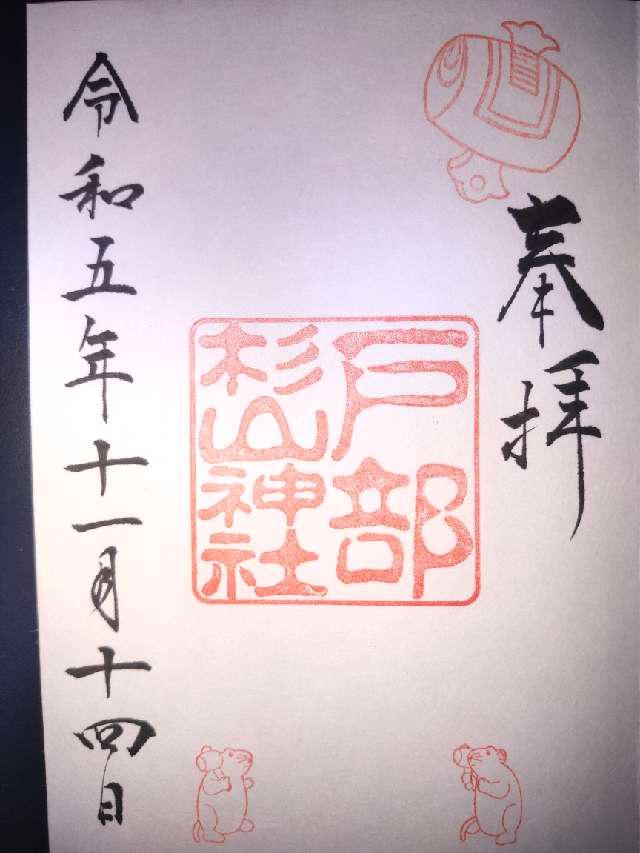 奉拝
戸部
杉山神社
令和五年十一月十四日